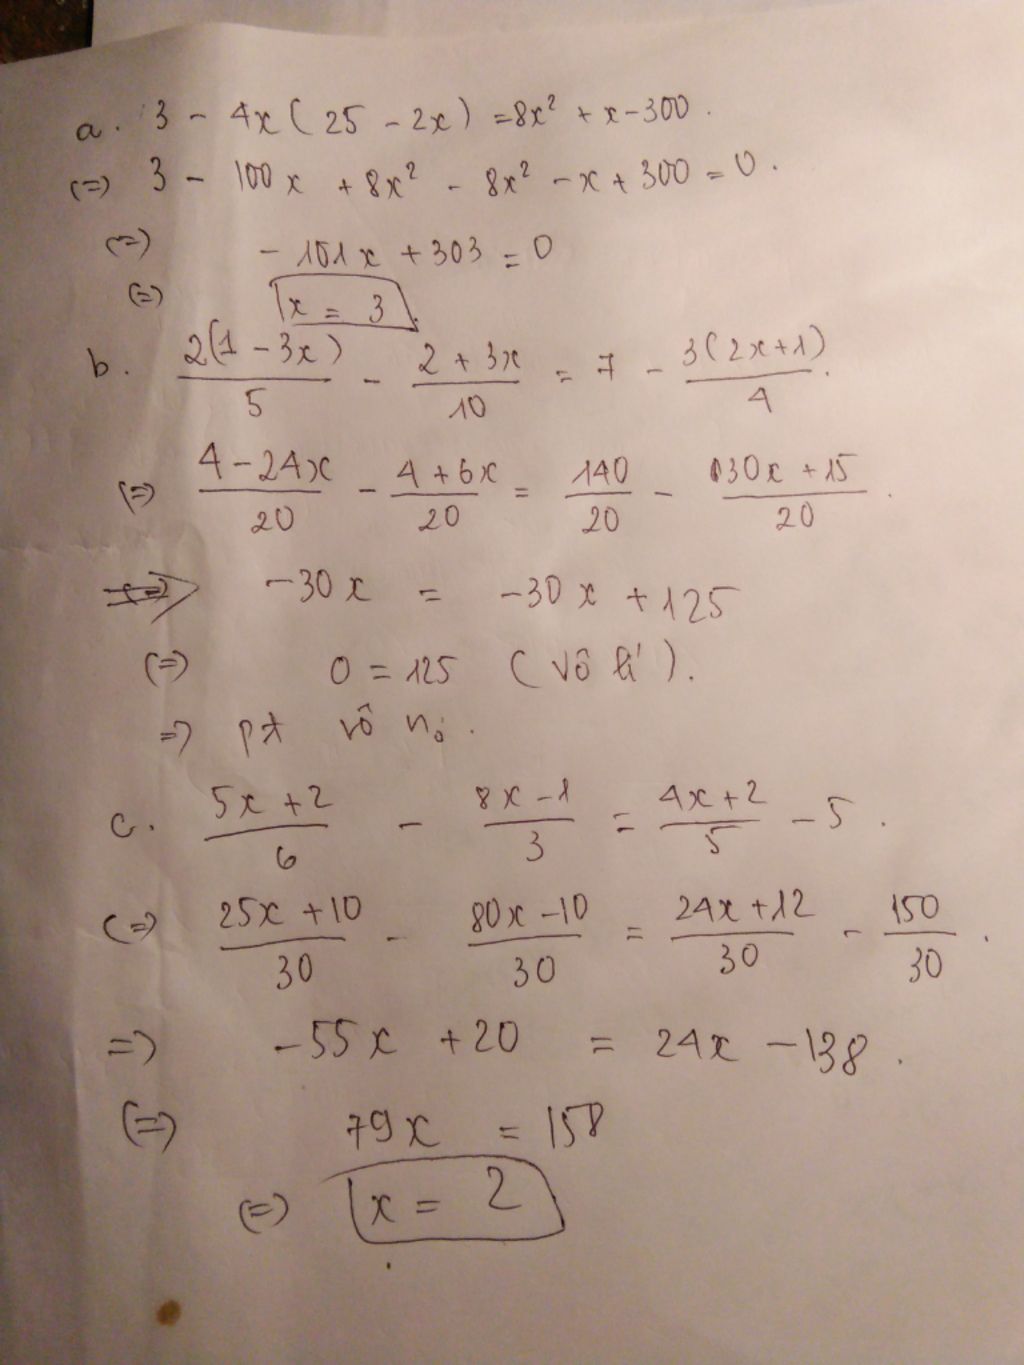 a. 3 - 4x(25 - 2x) = 8x² + x - 300.
(=) 3 - 100x + 8x² - 8x² - x + 300 = 0.
(=) - 101x + 303 = 0
(=) x = 3.
b. 2(1 - 3x)/5 - 2 + 3x/10 = 7 - 3(2x+1)/4.
(=) 4 - 24x/20 - 4 + 6x/20 = 140/20 - 30x + 15/20.
=> -30x = -30x + 125
(=) 0 = 125 (vô lí).
=) pt vô no.
c. 5x + 2/6 - 8x - 1/3 = 4x + 2/5 - 5.
(=) 25x + 10/30 - 80x - 10/30 = 24x + 12/30 - 150/30.
=) -55x + 20 = 24x - 138.
(=) 79x = 158
(=) x = 2